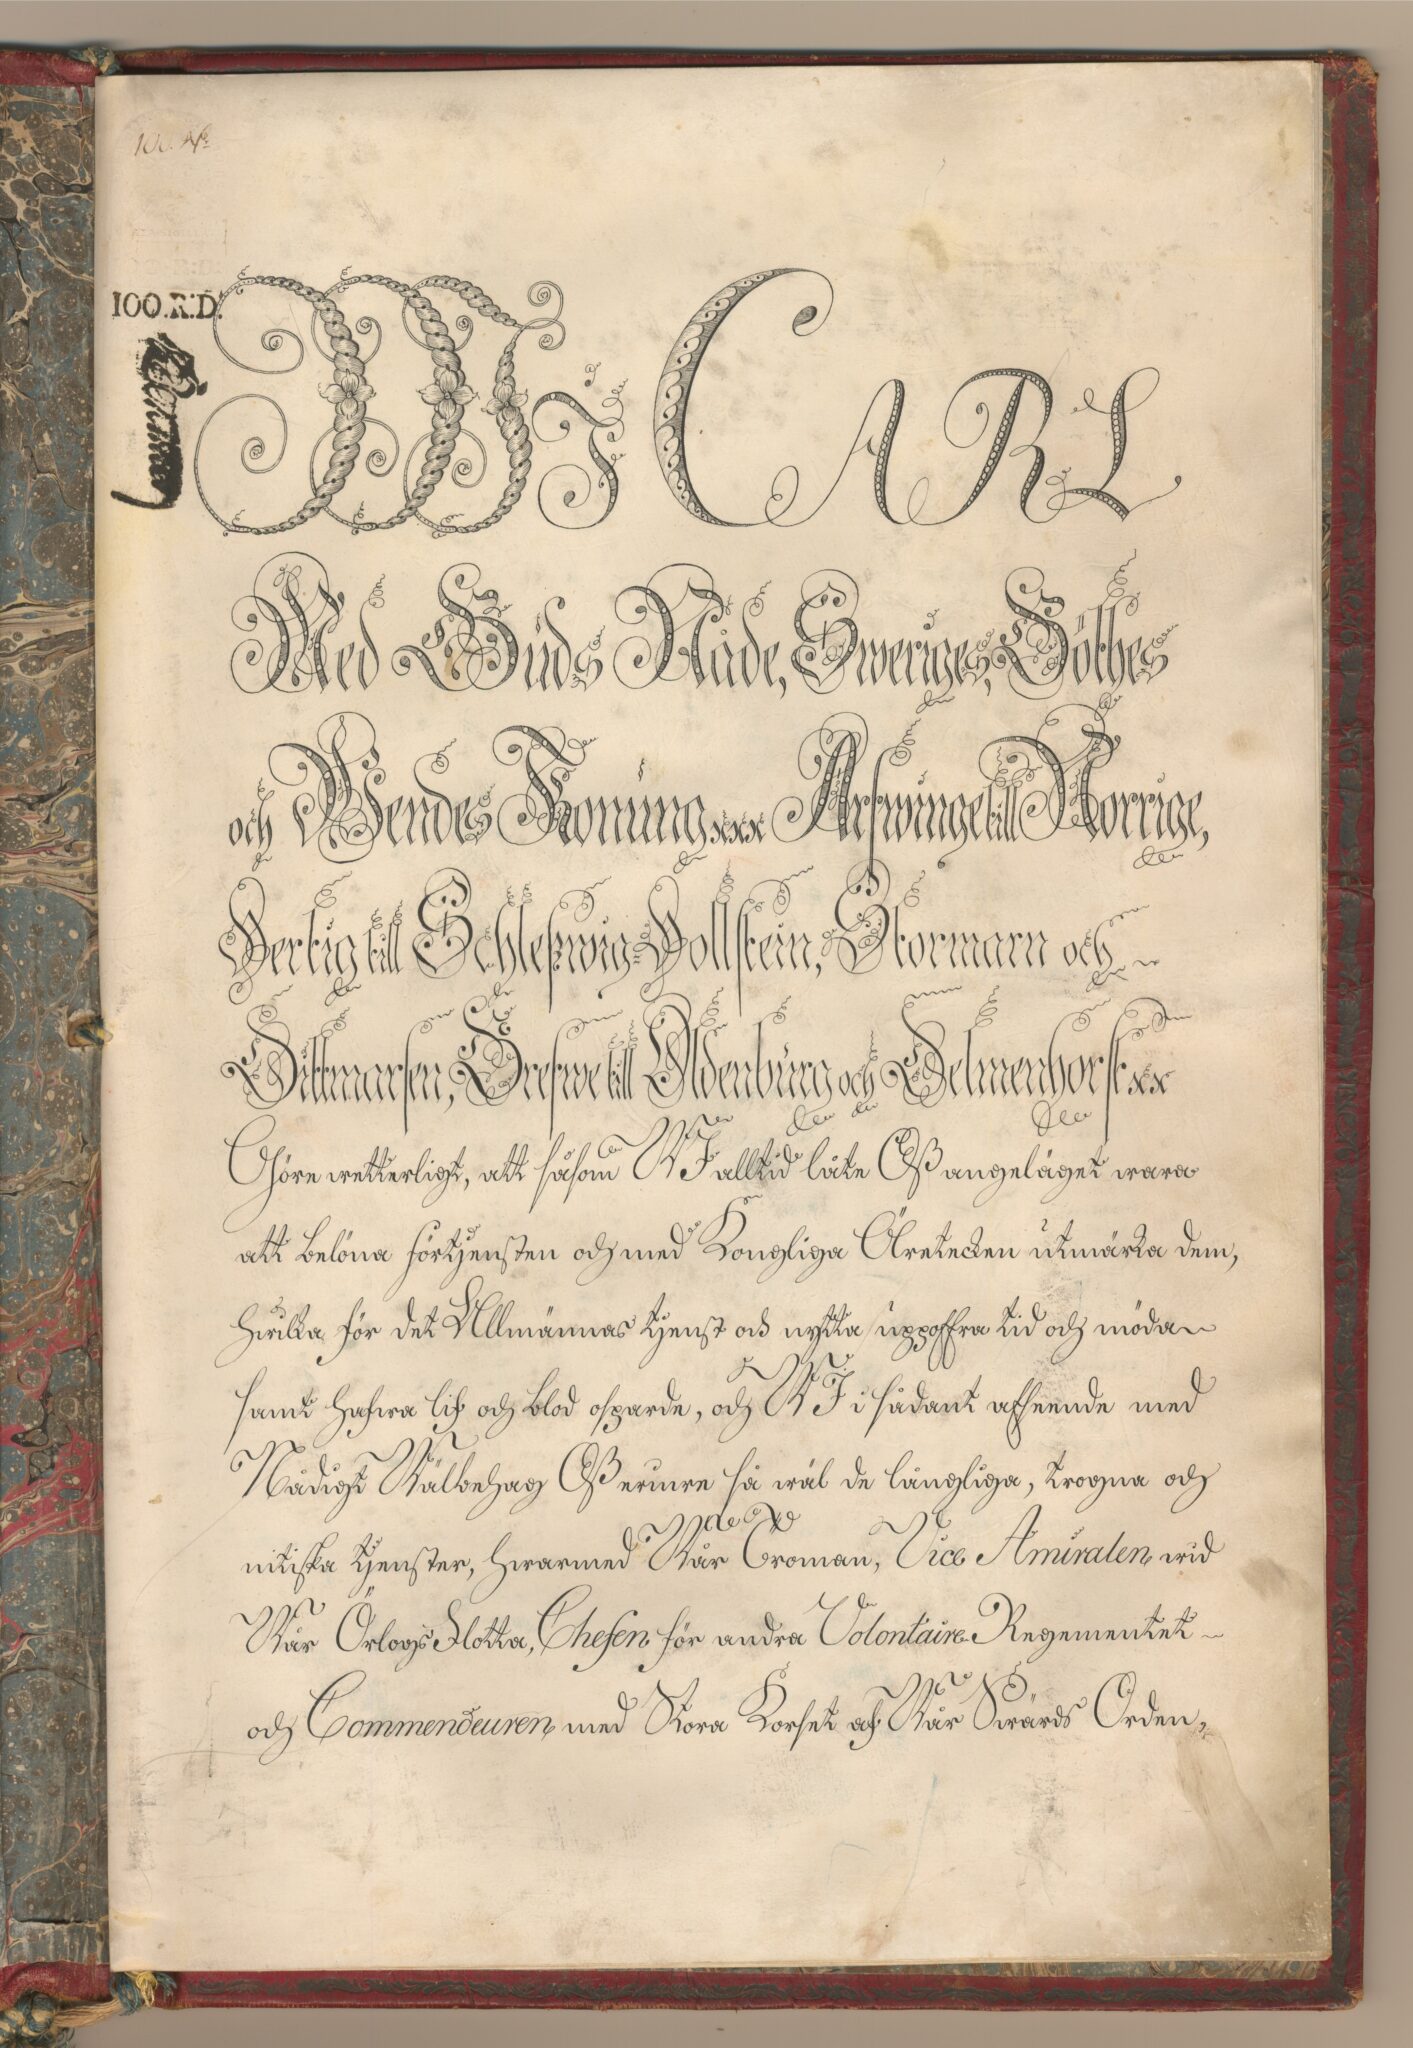 100. Rd
100.R:D.
Wi CARL
Med Guds Nåde, Sweriges, Göthes
och Wendes Konung xxx Arfwinge till Norrige,
Hertig till Schleßwig-Hollstein, Stormarn och
Dittmarsen, Grefwe till Oldenburg och Delmenhorst xx
Giöre wetterligt, att såsom WI alltid låte Oß angeläget wara
att belöna förtjensten och med Kongliga Äretecken utmärka dem,
hwilka för det Allmännas tjenst och nytta uppoffra tid och möda
samt hafwa lif och blod ospardt, och WI i sådant afseende med
Nådigt Wälbehag Oß erinre så wäl de långliga, trogna och
nitiska tjenster, hwarmed Wår Troman, Vice Amiralen wid
Wår Örlogs Flotta, Chefen för andra Volontaire Regementet
och Commendeuren med Stora Korset af Wår Swärds Orden,